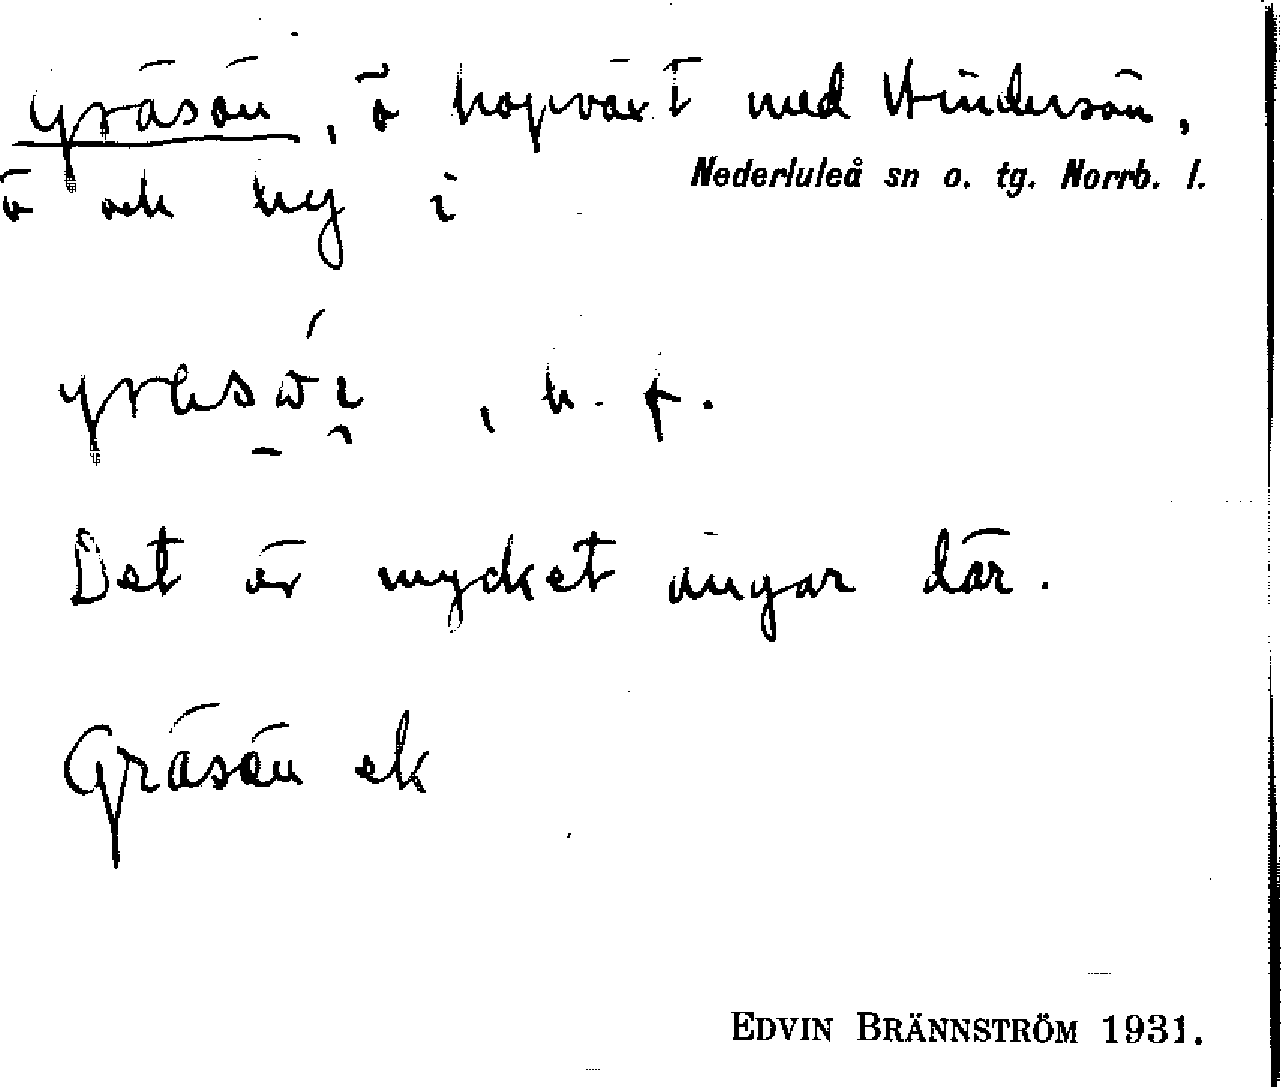 Gräsön, ö hopväxt med Hindersön,
Nederluleå sn o. tg. Norrb. l.
ö och by i
, n. f.
Det är mycket ängar där.
Gräsön ek
EDVIN BRÄNNSTRÖM 1931.